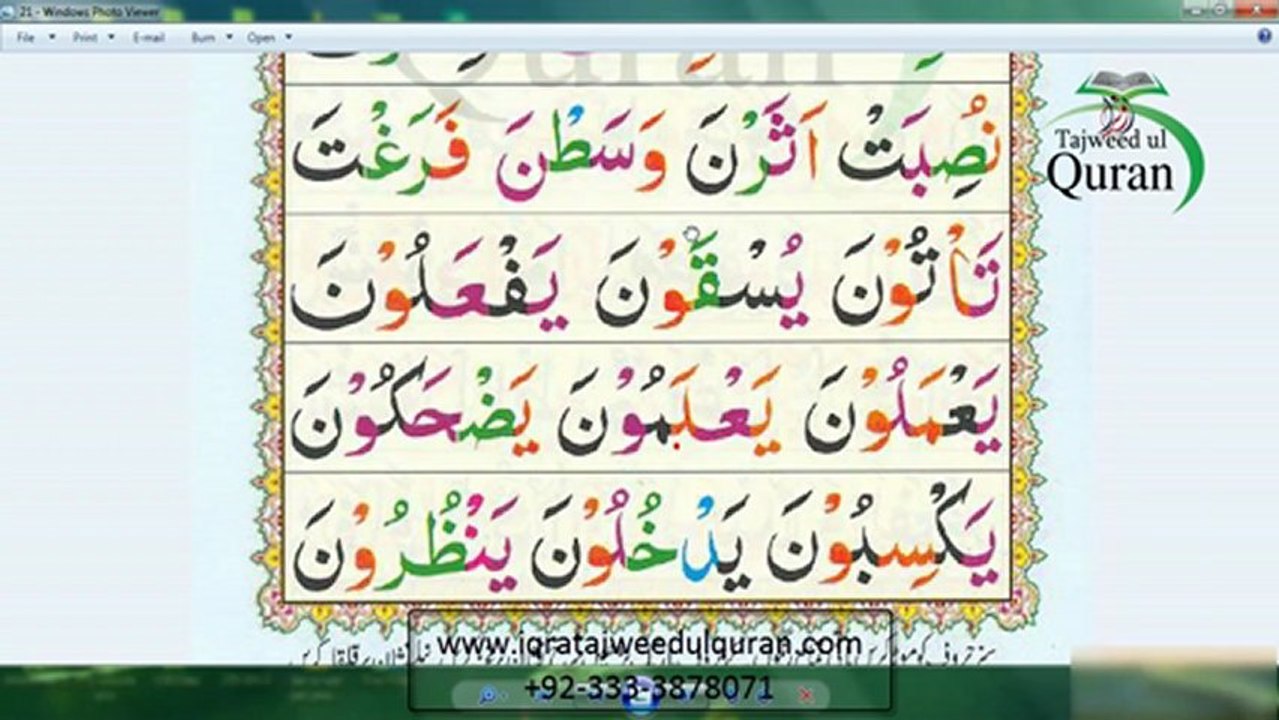 21 - Windows Photo Viewer
File Print E-mail Burn Open
Quran
Tajweed ul
Quran
نُصِبَتْ اَثَرْنَ وَسَطْنَ فَرَغْتَ
تَأْتُوْنَ يُسْقَوْنَ يَفْعَلُوْنَ
يَعْمَلُوْنَ يَعْلَمُوْنَ يَضْحَكُوْنَ
يَكْسِبُوْنَ يَدْخُلُوْنَ يَنْظُرُوْنَ
www.iqratajweedulquran.com
+92-333-3878071